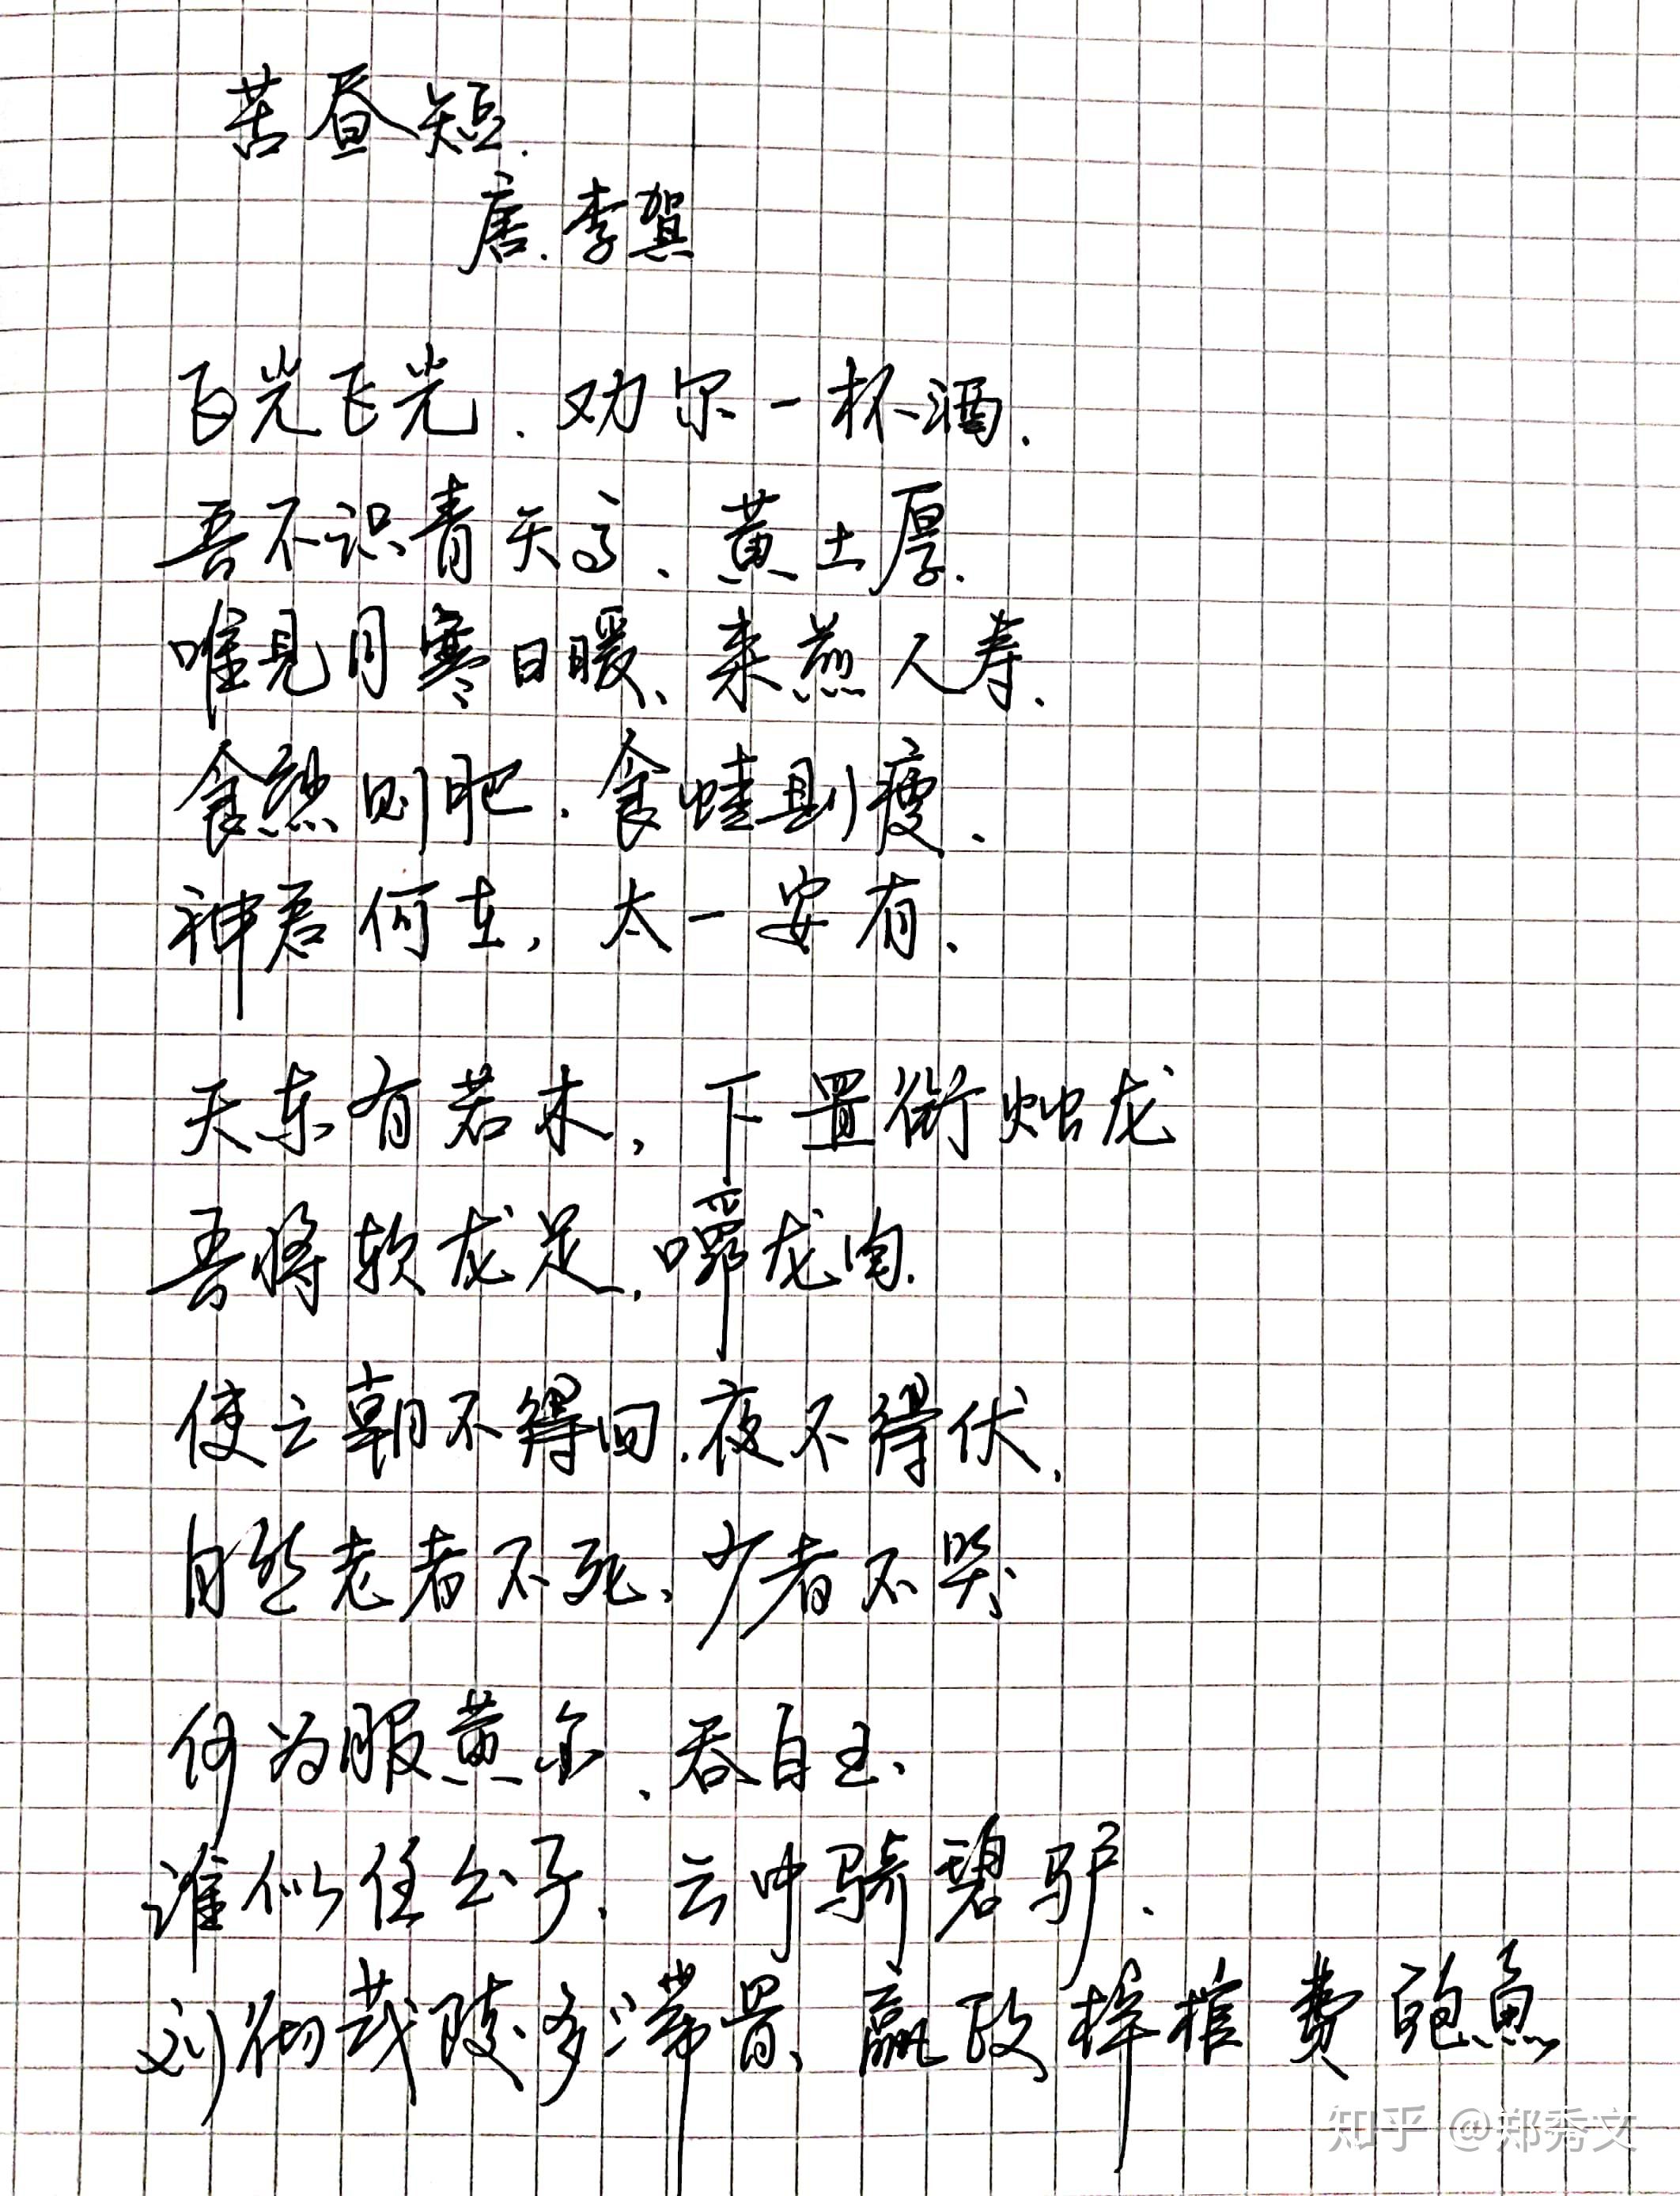 苦昼短.
唐.李贺
飞光飞光、劝尔一杯酒.
吾不识青天高、黄土厚.
唯见月寒日暖、来煎人寿.
食熊则肥.食蛙则瘦.
神君何在,太一安有.
天东有若木,下置衔烛龙
吾将软龙足.嚼龙肉.
使之朝不得回.夜不得伏.
自然老者不死、少者不哭
何为服黄金、吞白玉.
谁似任公子、云中骑碧驴.
刘彻茂陵多滞骨、嬴政梓棺费鲍鱼
知乎 @郑秀文